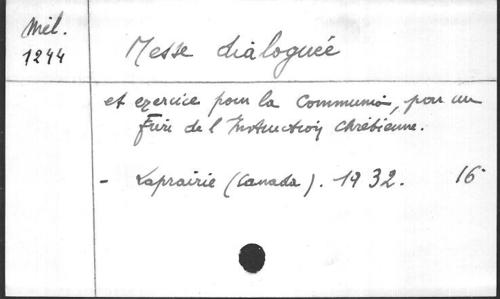 Mél.
1244
Messe dialoguée
et exercice pour la Communion, par un
Frère de l'Instruction chrétienne.
- Laprairie (Canada). 1932. 16°